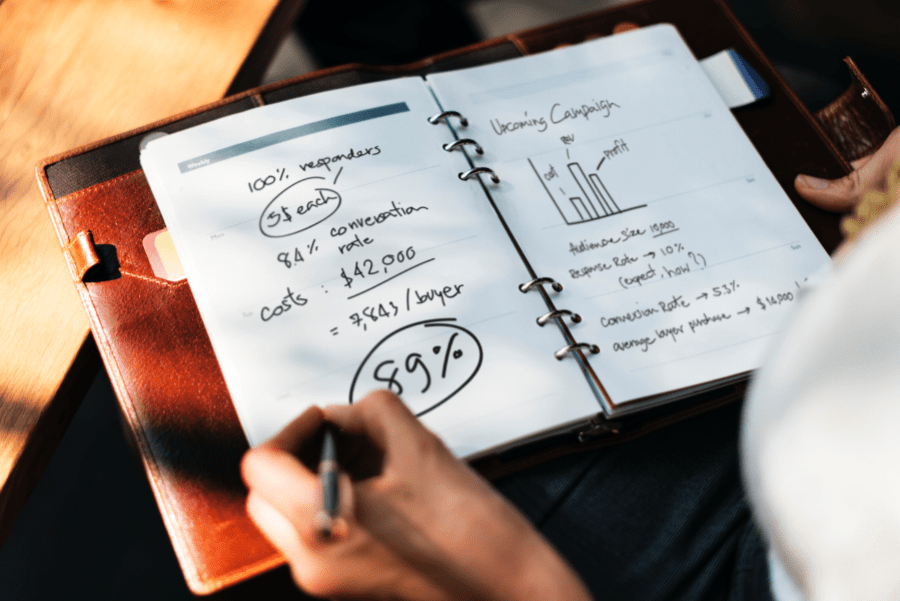 Weekly
100% responders
5$ each
8.4% conversation
rate
costs : $42,000
= 7,843 / buyer
89%
Upcoming Campaign
profit
Audience Size 10,000
Response Rate → 10%
(expect. how?)
Conversion Rate → 5.3%
average buyer purchase → $ 14,000